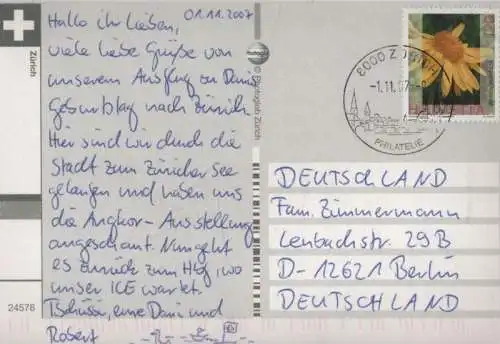 Hallo ihr Lieben, 01.11.2007
viele liebe Grüße von
unserem Ausflug zu Danis
Geburtstag nach Zürich.
Hier sind wir durch die
Stadt zum Züricher See
gelangen und haben uns
die Angkor-Ausstellung
angeschaut. Nun geht
es zurück zum Hbf, wo
unser ICE wartet.
Tschüssi, eure Dani und
Robert
Zürich
24576
© Photoglob Zürich
8000 ZÜRICH
-1.11.07-
PHILATELIE
HELVETIA
DEUTSCHLAND
Fam. Zimmermann
Lenbachstr. 29B
D-12621 Berlin
DEUTSCHLAND